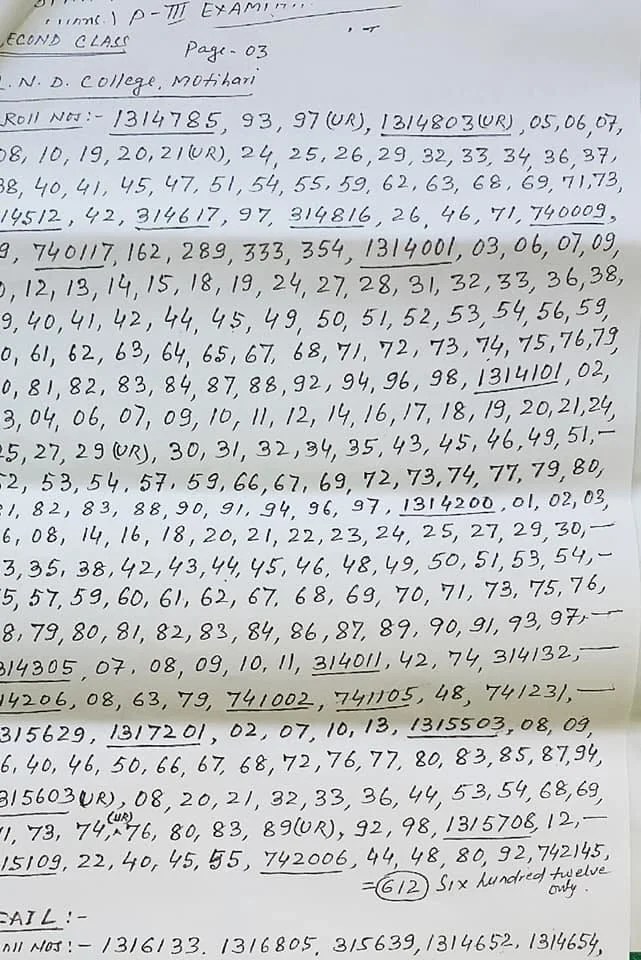 P-III EXAMI
SECOND CLASS Page-03
L.N.D. College, Motihari
ROLL NOS:- 1314785, 93, 97(UR), 1314803(UR), 05,06,07,
08, 10, 19, 20, 21(UR), 24, 25, 26, 29, 32, 33, 34, 36, 37,
38, 40, 41, 45, 47, 51, 54, 55, 59, 62, 63, 68, 69, 71,73,
14512, 42, 314617, 97, 314816, 26, 46, 71, 740009,
9, 740117, 162, 289, 333, 354, 1314001, 03, 06, 07, 09,
0, 12, 13, 14, 15, 18, 19, 24, 27, 28, 31, 32, 33, 36, 38,
9, 40, 41, 42, 44, 45, 49, 50, 51, 52, 53, 54, 56, 59,
0, 61, 62, 63, 64, 65, 67, 68, 71, 72, 73, 74, 75, 76, 79
0, 81, 82, 83, 84, 87, 88, 92, 94, 96, 98, 1314101, 02,
3, 04, 06, 07, 09, 10, 11, 12, 14, 16, 17, 18, 19, 20, 21, 24,
25, 27, 29(UR), 30, 31, 32, 34, 35, 43, 45, 46, 49, 51,-
52, 53, 54, 57, 59, 66, 67, 69, 72, 73, 74, 77, 79, 80,
81, 82, 83, 88, 90, 91, 94, 96, 97, 1314200, 01, 02, 03,
6, 08, 14, 16, 18, 20, 21, 22, 23, 24, 25, 27, 29, 30,-
3, 35, 38, 42, 43, 44, 45, 46, 48, 49, 50, 51, 53, 54,-
5, 57, 59, 60, 61, 62, 67, 68, 69, 70, 71, 73, 75, 76,
8, 79, 80, 81, 82, 83, 84, 86, 87, 89, 90, 91, 93, 97,-
314305, 07, 08, 09, 10, 11, 314011, 42, 74, 314132,-
14206, 08, 63, 79, 741002, 741105, 48, 741231,-
315629, 1317201, 02, 07, 10, 13, 1315503, 08, 09,
6, 40, 46, 50, 66, 67, 68, 72, 76, 77, 80, 83, 85, 87, 94,
315603(UR), 08, 20, 21, 32, 33, 36, 44, 53, 54, 68, 69,
71, 73, 74,(UR) 76, 80, 83, 89(UR), 92, 98, 1315708, 12,-
15109, 22, 40, 45, 55, 742006, 44, 48, 80, 92, 742145,
=612) Six hundred twelve
only.
FAIL:-
Roll NOS:- 1316133, 1316805, 315639, 1314652, 1314654,